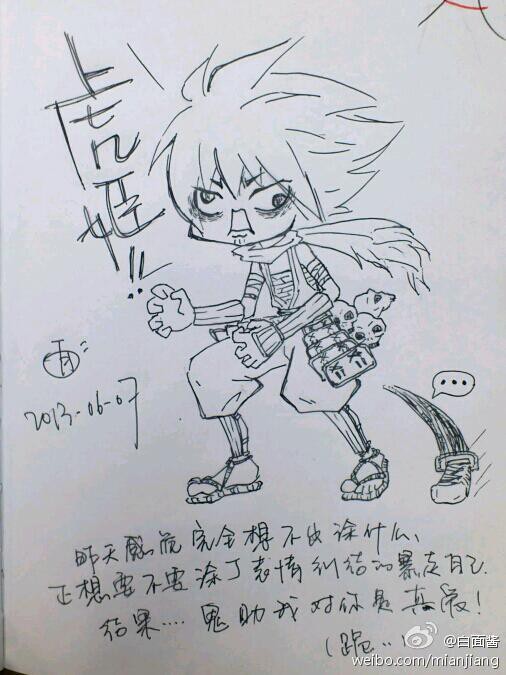 虎姫!!
2013-06-07
...
昨天 完全想不出涂什么、
正想要不要涂了表情纠结的暴走自己.
结果.... 鬼助我对你是真爱!
(跪..)
@白面酱
weibo.com/mianjiang